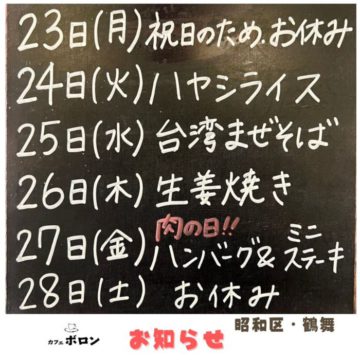 23日(月)祝日のため、お休み
24日(火)ハヤシライス
25日(水)台湾まぜそば
26日(木)生姜焼き
肉の日!!
27日(金)ハンバーグ&ミニステーキ
28日(土)お休み
カフェ ボロン
お知らせ
昭和区・鶴舞